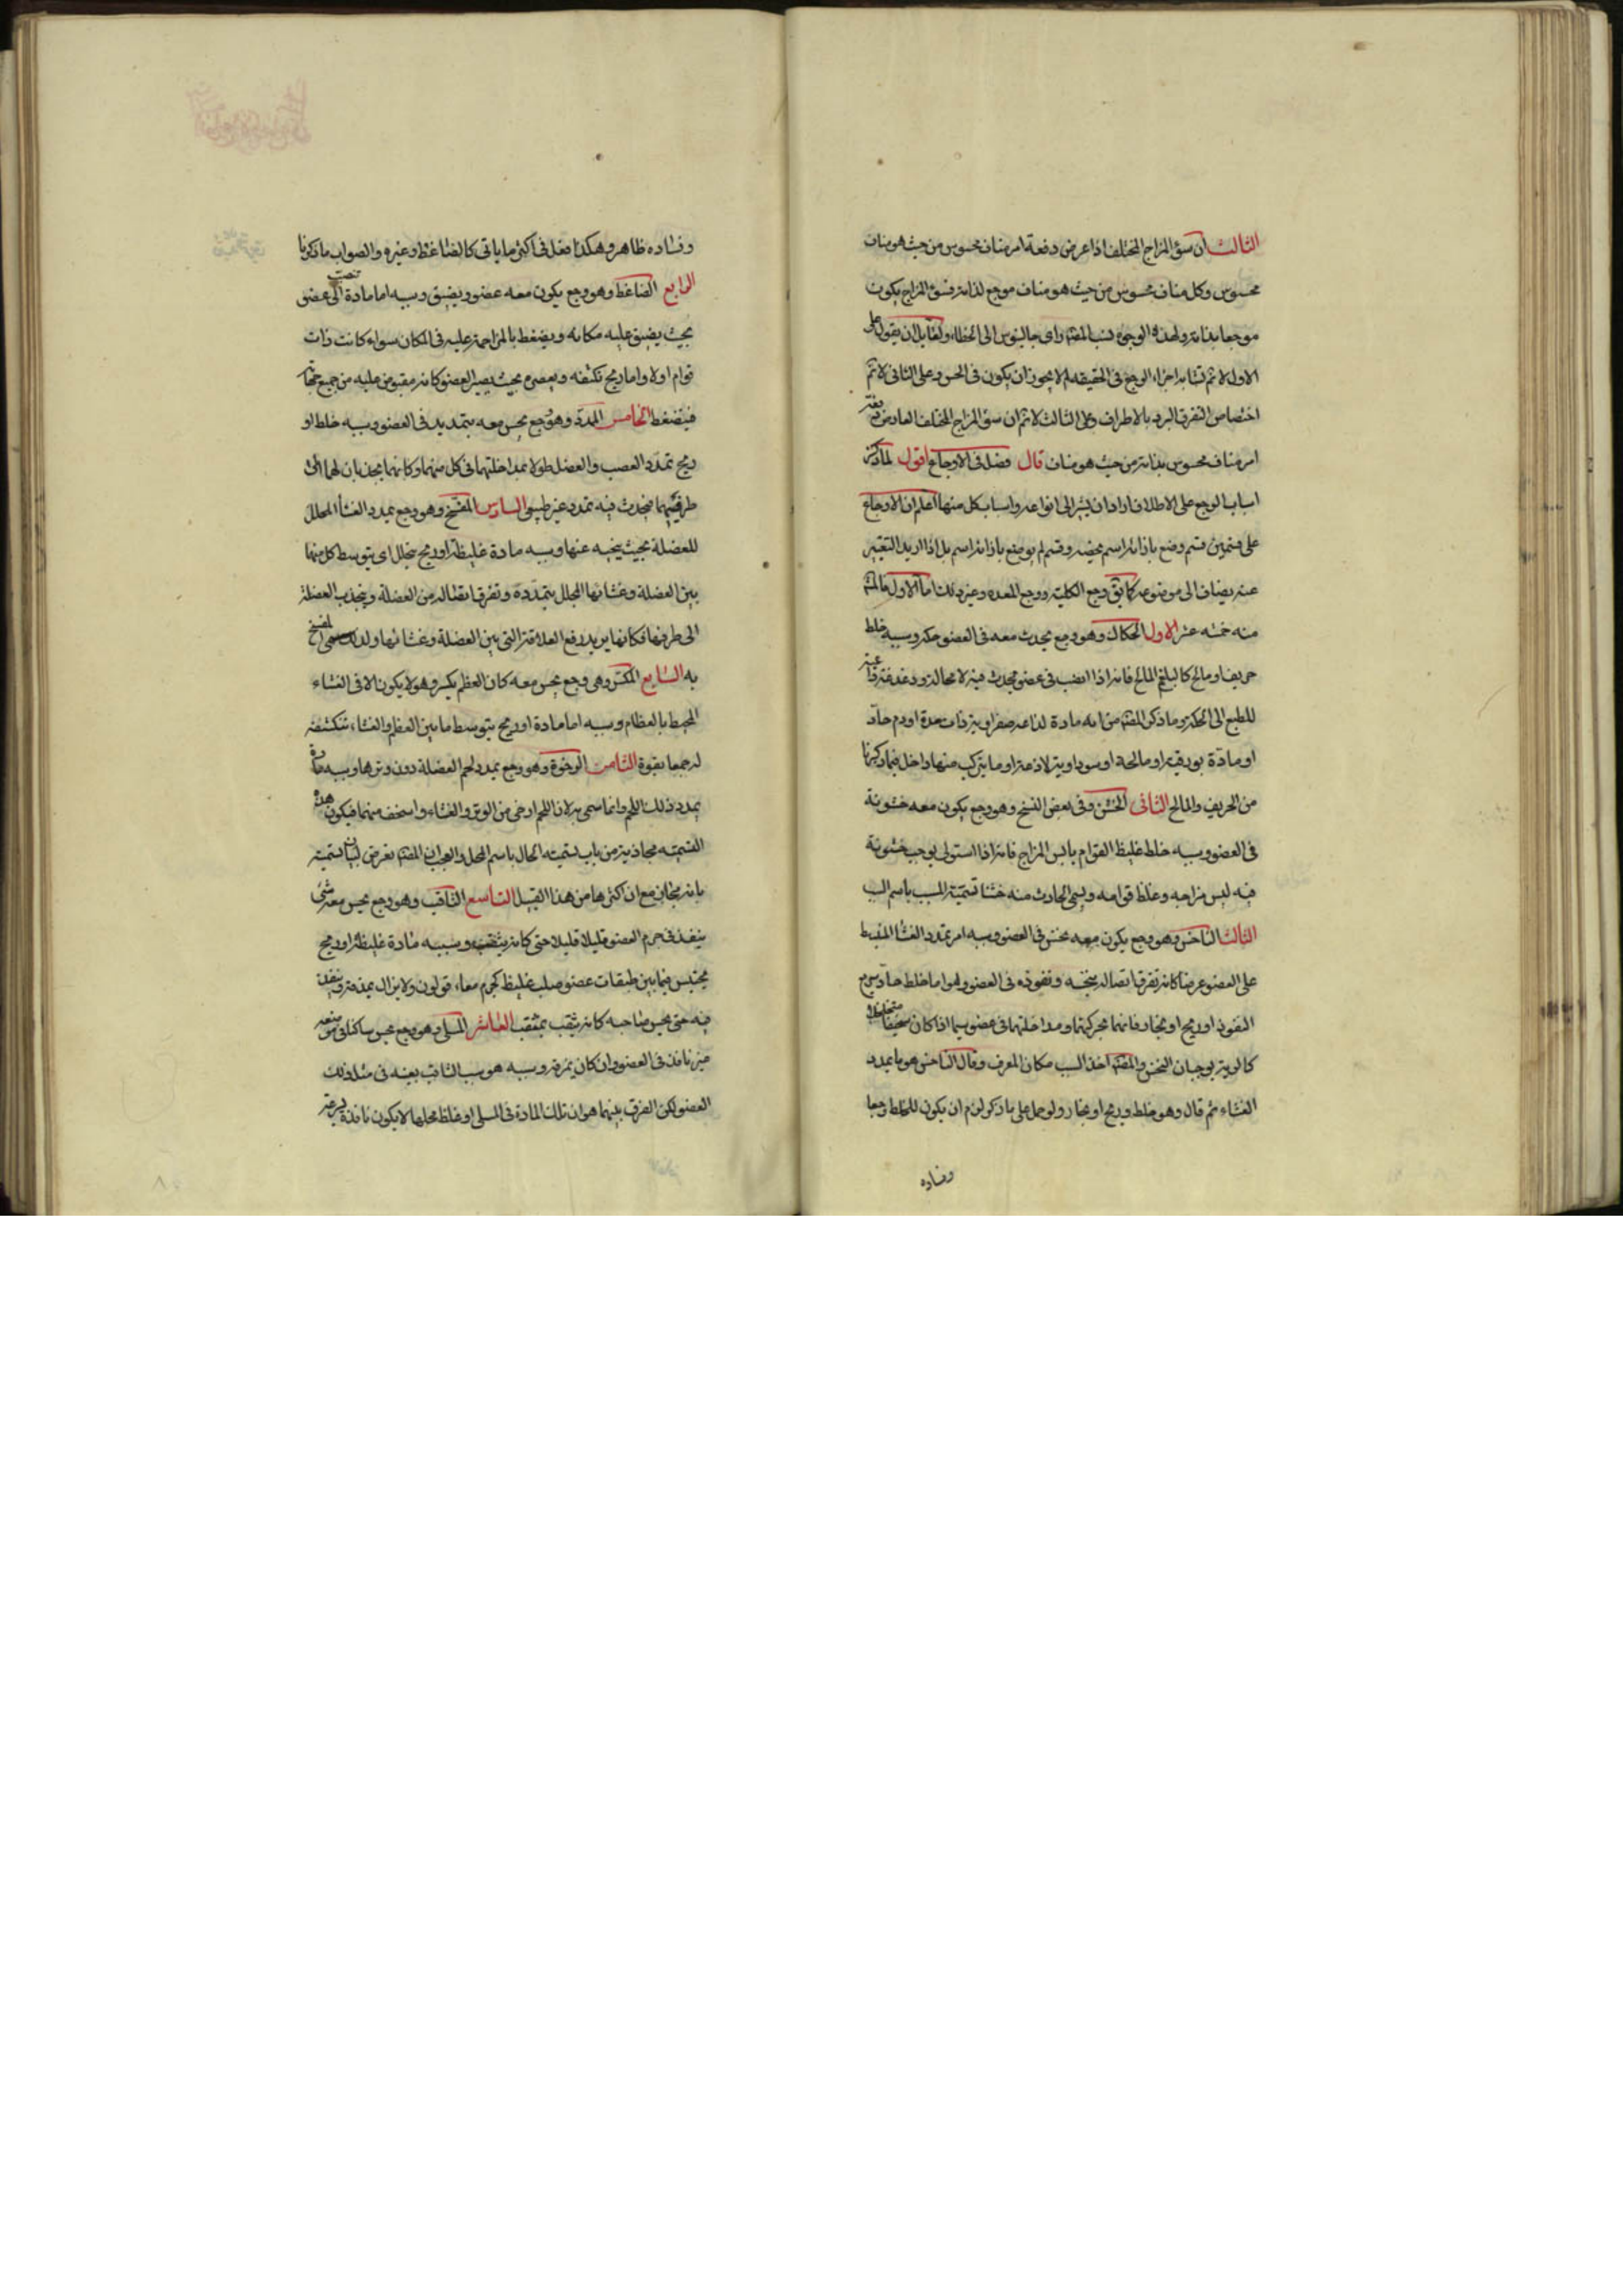 الثالث ان سوء المزاج المختلف اذا عرض دفعة امر مناف محسوس من حيث هو مناف
محسوس وكل مناف محسوس من حيث هو مناف موجع لذاته فسوء المزاج يكون
موجعا بذاته ولهذه الوجوه نسب المصنف راى جالينوس الى الخطاء ولقايل ان يقول على
الاول لا نم تشابه اجزاء الوجع فى الحقيقه لم لا يجوز ان يكون فى الحس وعلى الثانى لا نم
اختصاص التفرق البرد بالاطراف وعلى الثالث لا نم ان سوء المزاج المختلف العارض دفعة
امر مناف محسوس بذاته من حيث هو مناف قال فصل فى الاوجاع اقول لما ذكر
اسباب الوجع على الاطلاق اراد ان يشير الى انواعه واسباب كل منها اعلم ان الاوجاع
على قسمين قسم وضع بازائه اسم يخصه وقسم لم يوضع بازائه اسم بل اذا اريد التعبير
عنه يضاف الى موضوعه كما يق وجع الكلية ووجع المعده وغير ذلك اما الاول فالمش
منه خمسه عشر الاول الحكاك وهو وجع يحدث معه فى العضو حكة وسببه خلط
حريف او مالح كالبلغم المالح فانه اذا انصب فى عضو يحدث فيه لا محالة دغدغة داعية
للطبع الى الحكة وما ذكر المصنف من انه مادة لذاعه صفراوية ذات حدة او دم حاد
او مادة بورقية او مالحة او سوداوية لاذعة او ما يتركب منها داخل فيما ذكرنا
من الحريف والمالح الثانى الخشن وفى بعض النسخ وهو وجع يكون معه خشونة
فى العضو وسببه خلط غليظ القوام يابس المزاج فانه اذا استولى يوجب خشونة
فيه ليبس مزاجه وغلظ قوامه ويسمى الحادث منه خشنا تسمية المسبب باسم السبب
الثالث الناخس وهو وجع يكون معه نخس فى العضو وسببه امر يمدد الغشا المنبسط
على العضو عرضا كانه تفرق اتصاله بنخسه ونفوذه فى العضو وهو اما خلط حاد سريع
النفوذ او ريح او بخار فانهما بحركتهما ومداخلتهما فى عضو سيما اذا كان سخيفا متخلخلا
كالرية يوجبان النخس والمصنف اخذ السبب مكان المعرف وقال الناخس هو ما يمدد
الغشاء ثم قال وهو خلط وريح او بخار ولو حمل على ما ذكر لزم ان يكون للخلط وجعا
وفساده
وفساده ظاهر وهكذا فعل فى اكثر ما ياتى كالضاغط وغيره والصواب ما ذكرنا
الرابع الضاغط وهو وجع يكون معه عضو ويضيق وسببه اما مادة تنصب الى عضو
بحيث يضيق عليه مكانه ويضغط بالمزاحمة عليه فى المكان سواء كانت ذات
قوام اولا واما ريح تكتنفه ويعصره بحيث يصير العضو كانه مقبوض عليه من جميع جهاته
فينضغط الخامس الممدد وهو وجع يحس معه بتمديد فى العضو وسببه خلط او
ريح تمدد العصب والعضل طولا بمداخلتهما فى كل منهما وكانهما يجذبان لهما الى
طرفيهما فيحدث فيه تمدد غير طبيعى السادس المفسخ وهو وجع يمدد الغشا المحلل
للعضلة بحيث ينحيه عنها وسببه مادة غليظة او ريح يتخلل اى يتوسط كل منهما
بين العضلة وغشائها المجلل بتمدده وتفرق اتصاله من العضلة وينجذب العضلة
الى طرفها فكانها يريد رفع العلاقة التى بين العضلة وغشائها ولذلك سمى المفسخ
به السابع المكسر وهى وجع يحس معه كان العظم يكسر وهو لا يكون الا فى الغشاء
المحيط بالعظام وسببه اما مادة او ريح يتوسط ما بين العظم والغشاء، تتكشفه
له جمعا بقوة الثامن الرخوة وهو وجع يمدد لحم العضلة دون وترها وسببه مادة
يمدد ذلك اللحم وانما سمى به لان اللحم ارخى من الوتر والغشاء واسخف منهما فيكون هذه
التسمية مجازية من باب تسمية الحال باسم المحل والعجب ان المصنف تعرض لبيان تسمية
بانه مجاز مع ان اكثرها من هذا القبيل التاسع الثاقب وهو وجع يحس معه شئ
ينفذ فى جرم العضو قليلا قليلا حتى كانه يثقب وسببه مادة غليظة او ريح
يحتبس فيما بين طبقات عضو صلب غليظ كجرم معاء قولون ولا يزال يمزقه وينفذ
فيه حتى يحس صاحبه كانه يثقب بمثقب العاشر المسلى وهو وجع يحس ساكنا فى موضعه
غير نافذ فى العضو وان كان يمزقه وسببه هو سبب الثاقب بعينه فى مثل ذلك
العضو لكن الفرق بينهما هو ان تلك المادة فى المسلى او غلظ محلها لا يكون نافذة بسرعة